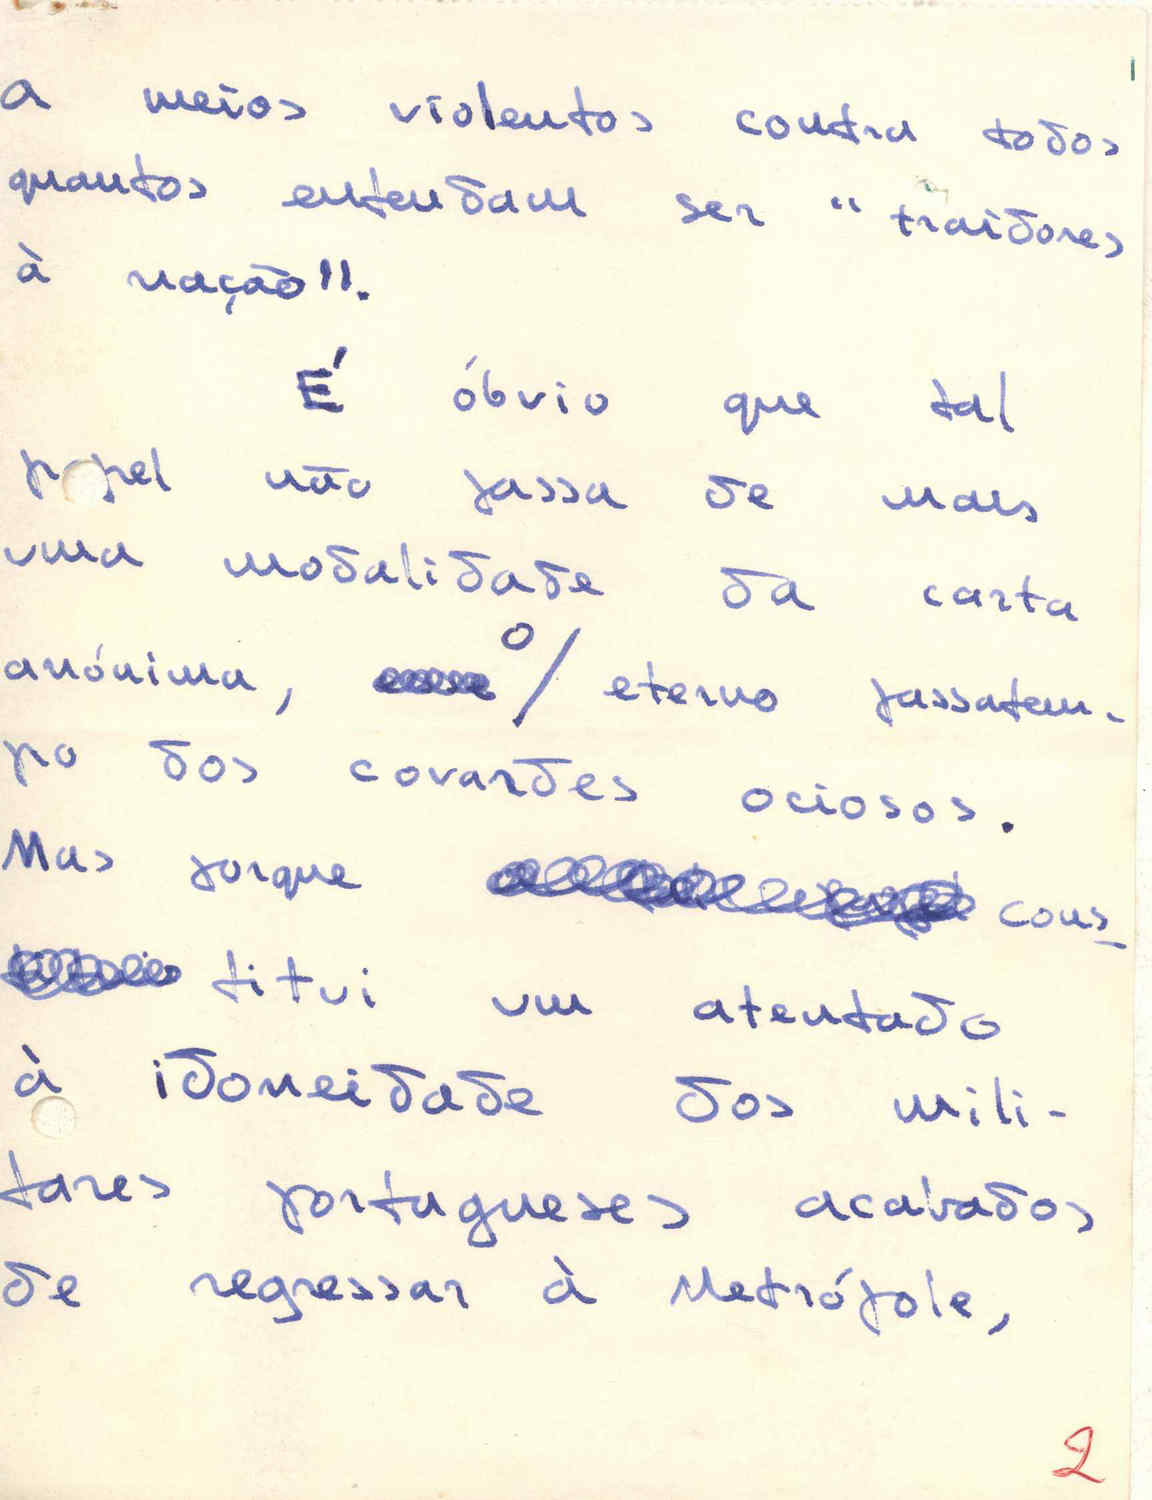 a meios violentos contra todos
quantos entendam ser "traidores
à nação".
É óbvio que tal
papel não passa de mais
uma modalidade da carta
anónima, o/ eterno passatem-
po dos covardes ociosos.
Mas porque cons-
titui um atentado
à idoneidade dos mili-
tares portugueses acabados
de regressar à Metrópole,
2